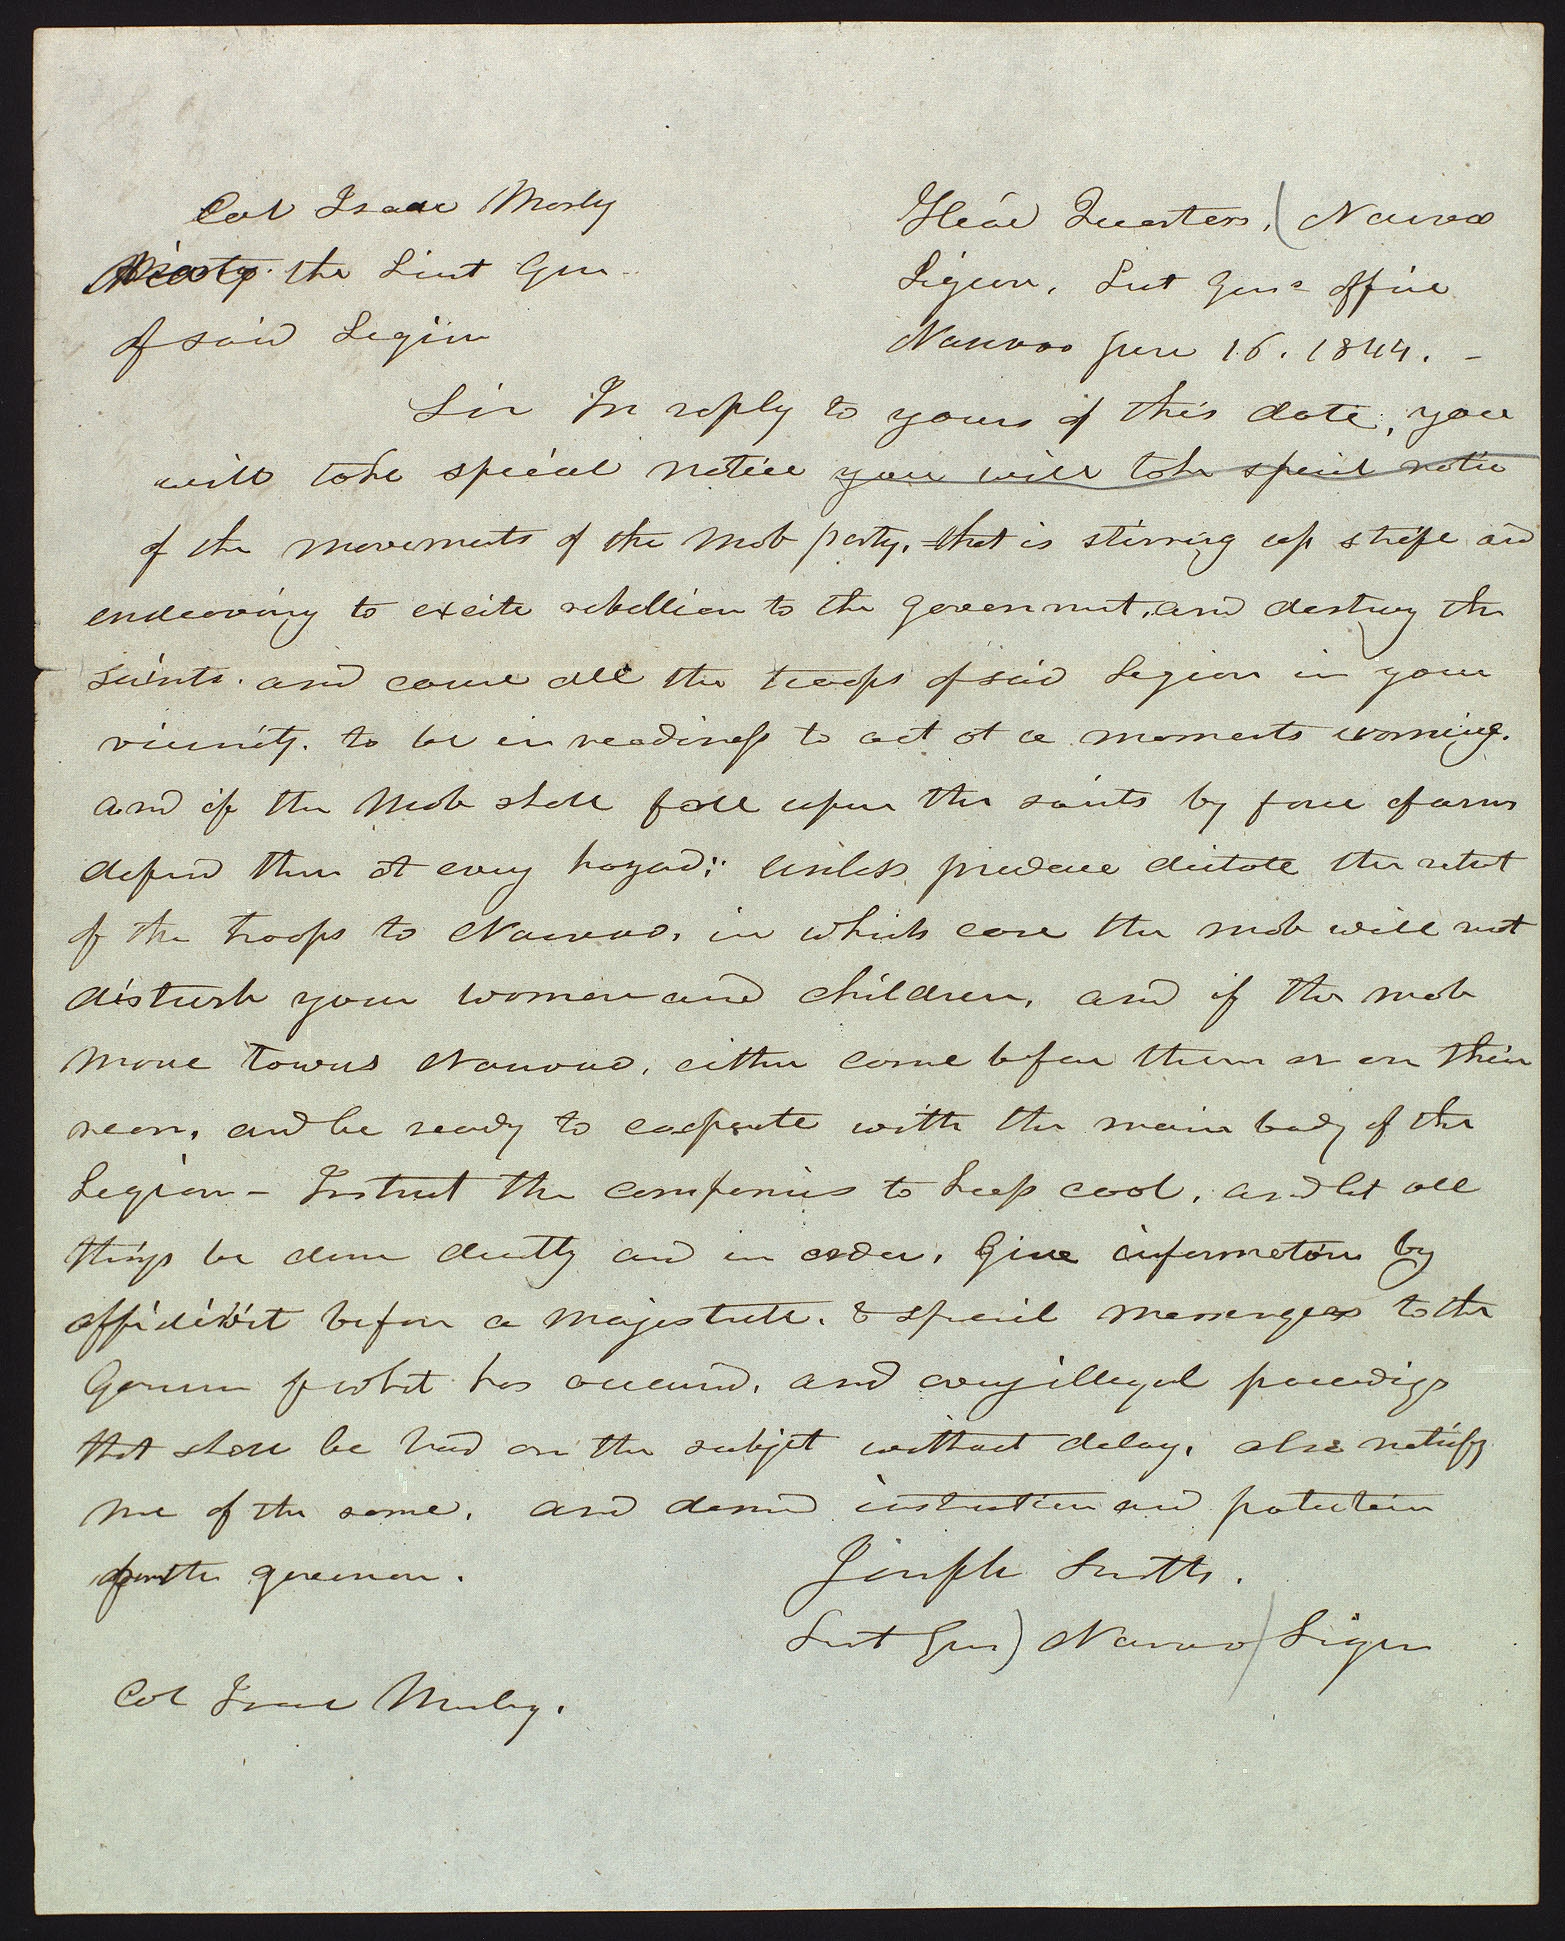 Col Isaac Morly
Head Quarters, Nauvoo
the Lieut Gen
Legion, Lieut Gens office
of said Legion
Nauvoo June 16. 1844. -
Sir In reply to yours of this date, you
will take special notice you will take special notice
of the movements of the Mob party, that is stirring up strife and
endeavoring to excite rebellion to the government, and destroy the
saints. and cause all the troops of said Legion in your
vicinity. to be in readiness to act at a moments warning.
and if the Mob shall fall upon the saints by force of arms
defend them at every hazard; unless prudence dictate the retreat
of the troops to Nauvoo, in which case the mob will not
disturb your women and children, and if the mob
move towards Nauvoo, either come before them or on their
rear, and be ready to cooperate with the main body of the
Legion - Instruct the companies to keep cool, and let all
things be done decently and in order, Give information by
affidavit before a majestrate. & special messengers to the
Governor of what has occurred, and every illegal proceedings
that shall be had on the subject without delay, also notify
me of the same, and demand instruction and protection
from the governor.
Joseph Smith.
Lieut Gen) Nauvoo Legion
Col Isaac Morley.